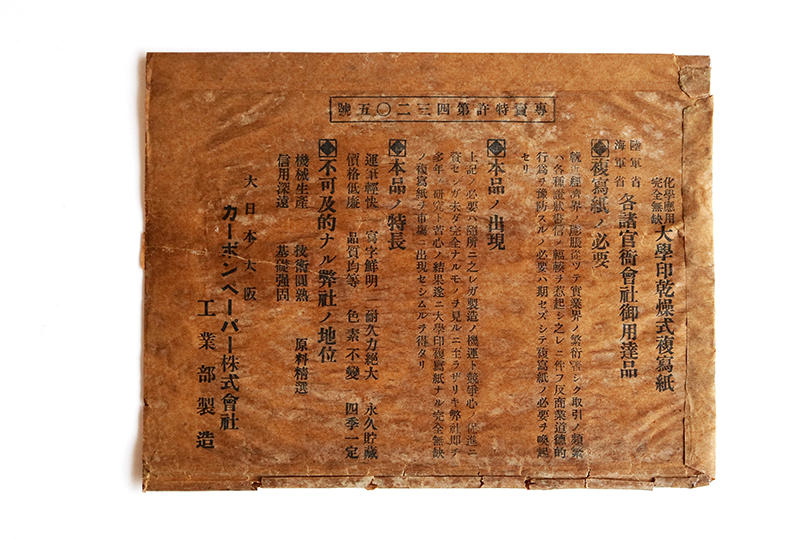 專賣特許第四三二〇五號
化學應用
完全無缺
大學印乾燥式複寫紙
陸軍省
海軍省
各諸官衙會社御用達品
複寫紙ノ必要
ハ各種證狀書信ノ輻輳ヲ惹起シ之レニ伴フ反商業道德的
行爲ヲ豫防スルノ必要ハ期セズシテ複寫紙ノ必要ヲ喚起
セリ
本品ノ出現
上記ノ必要ハ隨所ニ之レガ製造ノ機運ト競爭心ノ促進ニ
資セシガ未ダ完全ナルモノヲ見ルニ至ラザリキ弊社即チ
多年ノ研究ト苦心ノ結果遂ニ大學印複寫紙ナル完全無缺
ノ複寫紙ヲ市場ニ出現セシムルヲ得タリ
本品ノ特長
運筆輕快 寫字鮮明 耐久力絶大 永久貯藏
價格低廉 品質均等 色素不變 四季一定
不可及的ナル弊社ノ地位
機械生產 技術圓熟 原料精選
信用深遠 基礎强固
大日本大阪
カーボンペーパー株式會社
工業部製造